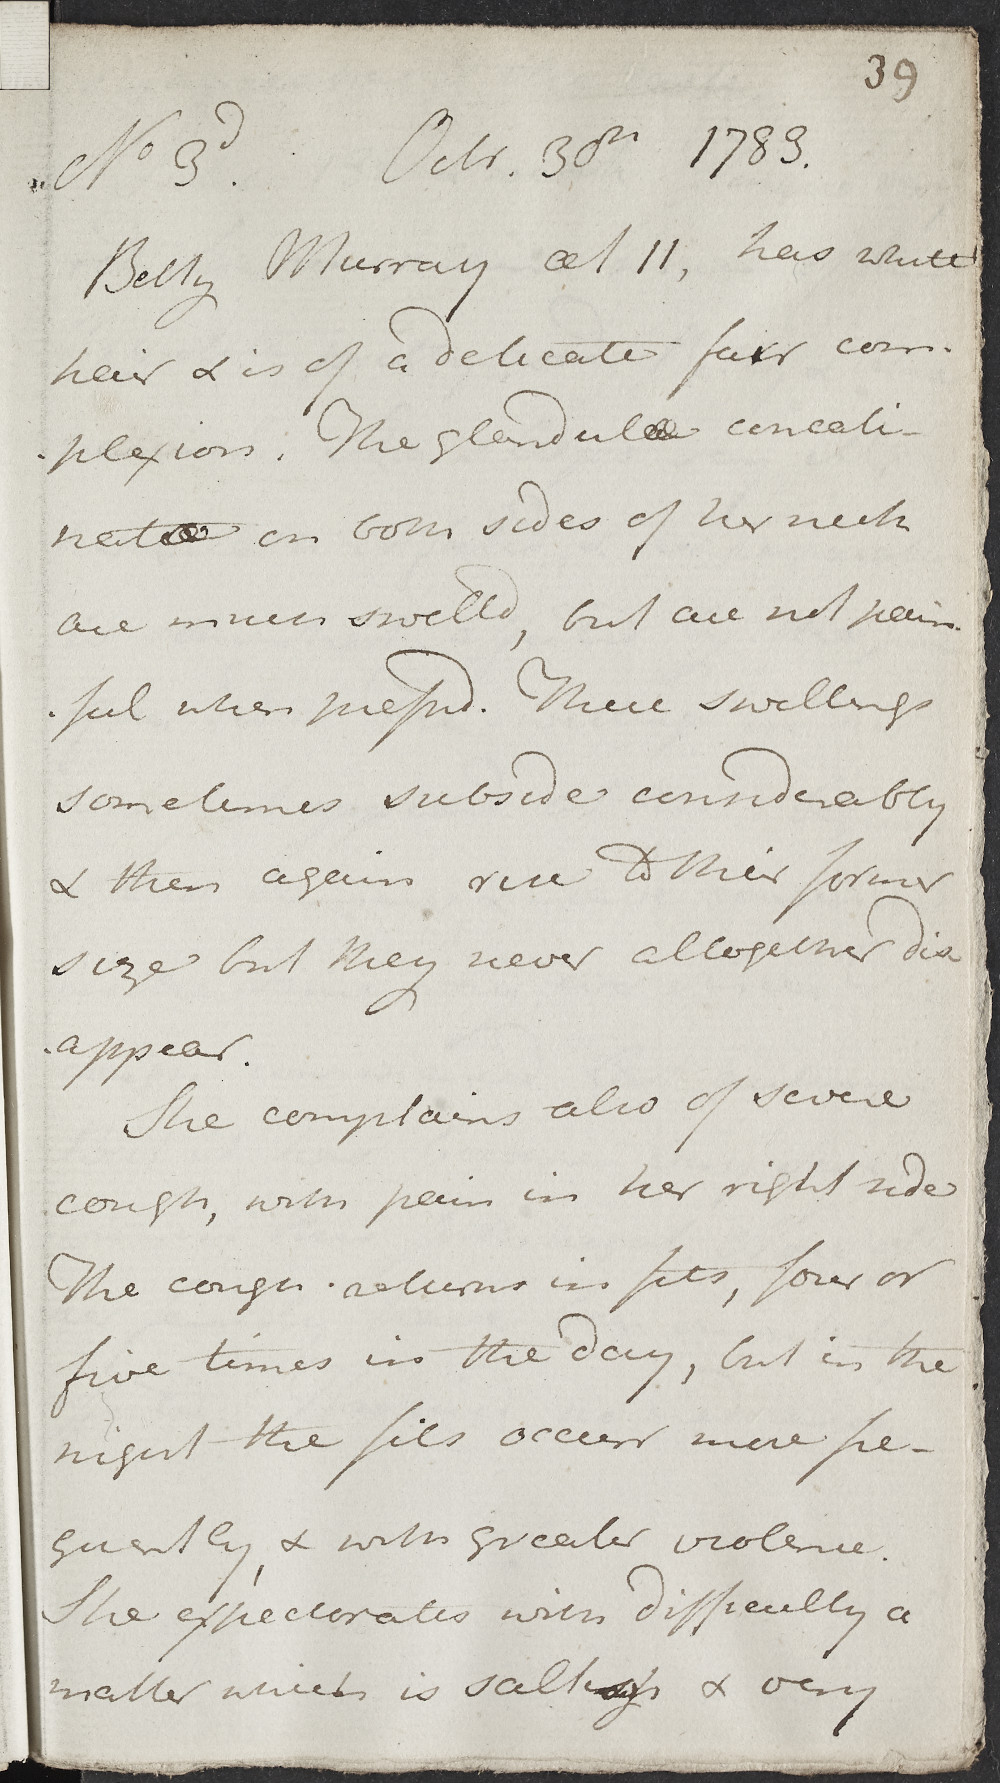 39
No 3d. Octr. 30th 1783.
Betty Murray æt 11, has white
hair & is of a delicate fair com-
plexion. The glandulæ concati-
natæ on both sides of her neck
are much swelld, but are not pain-
-ful when pressd. These swellings
sometimes subside considerably
& then again rise to their former
size but they never altogether dis
-appear.
She complains also of severe
cough, with pain in her right side
The cough returns in fits, four or
five times in the day, but in the
night the fits occurr more fre-
quently, & with greater violence.
She expectorates with difficulty a
matter which is saltish & very